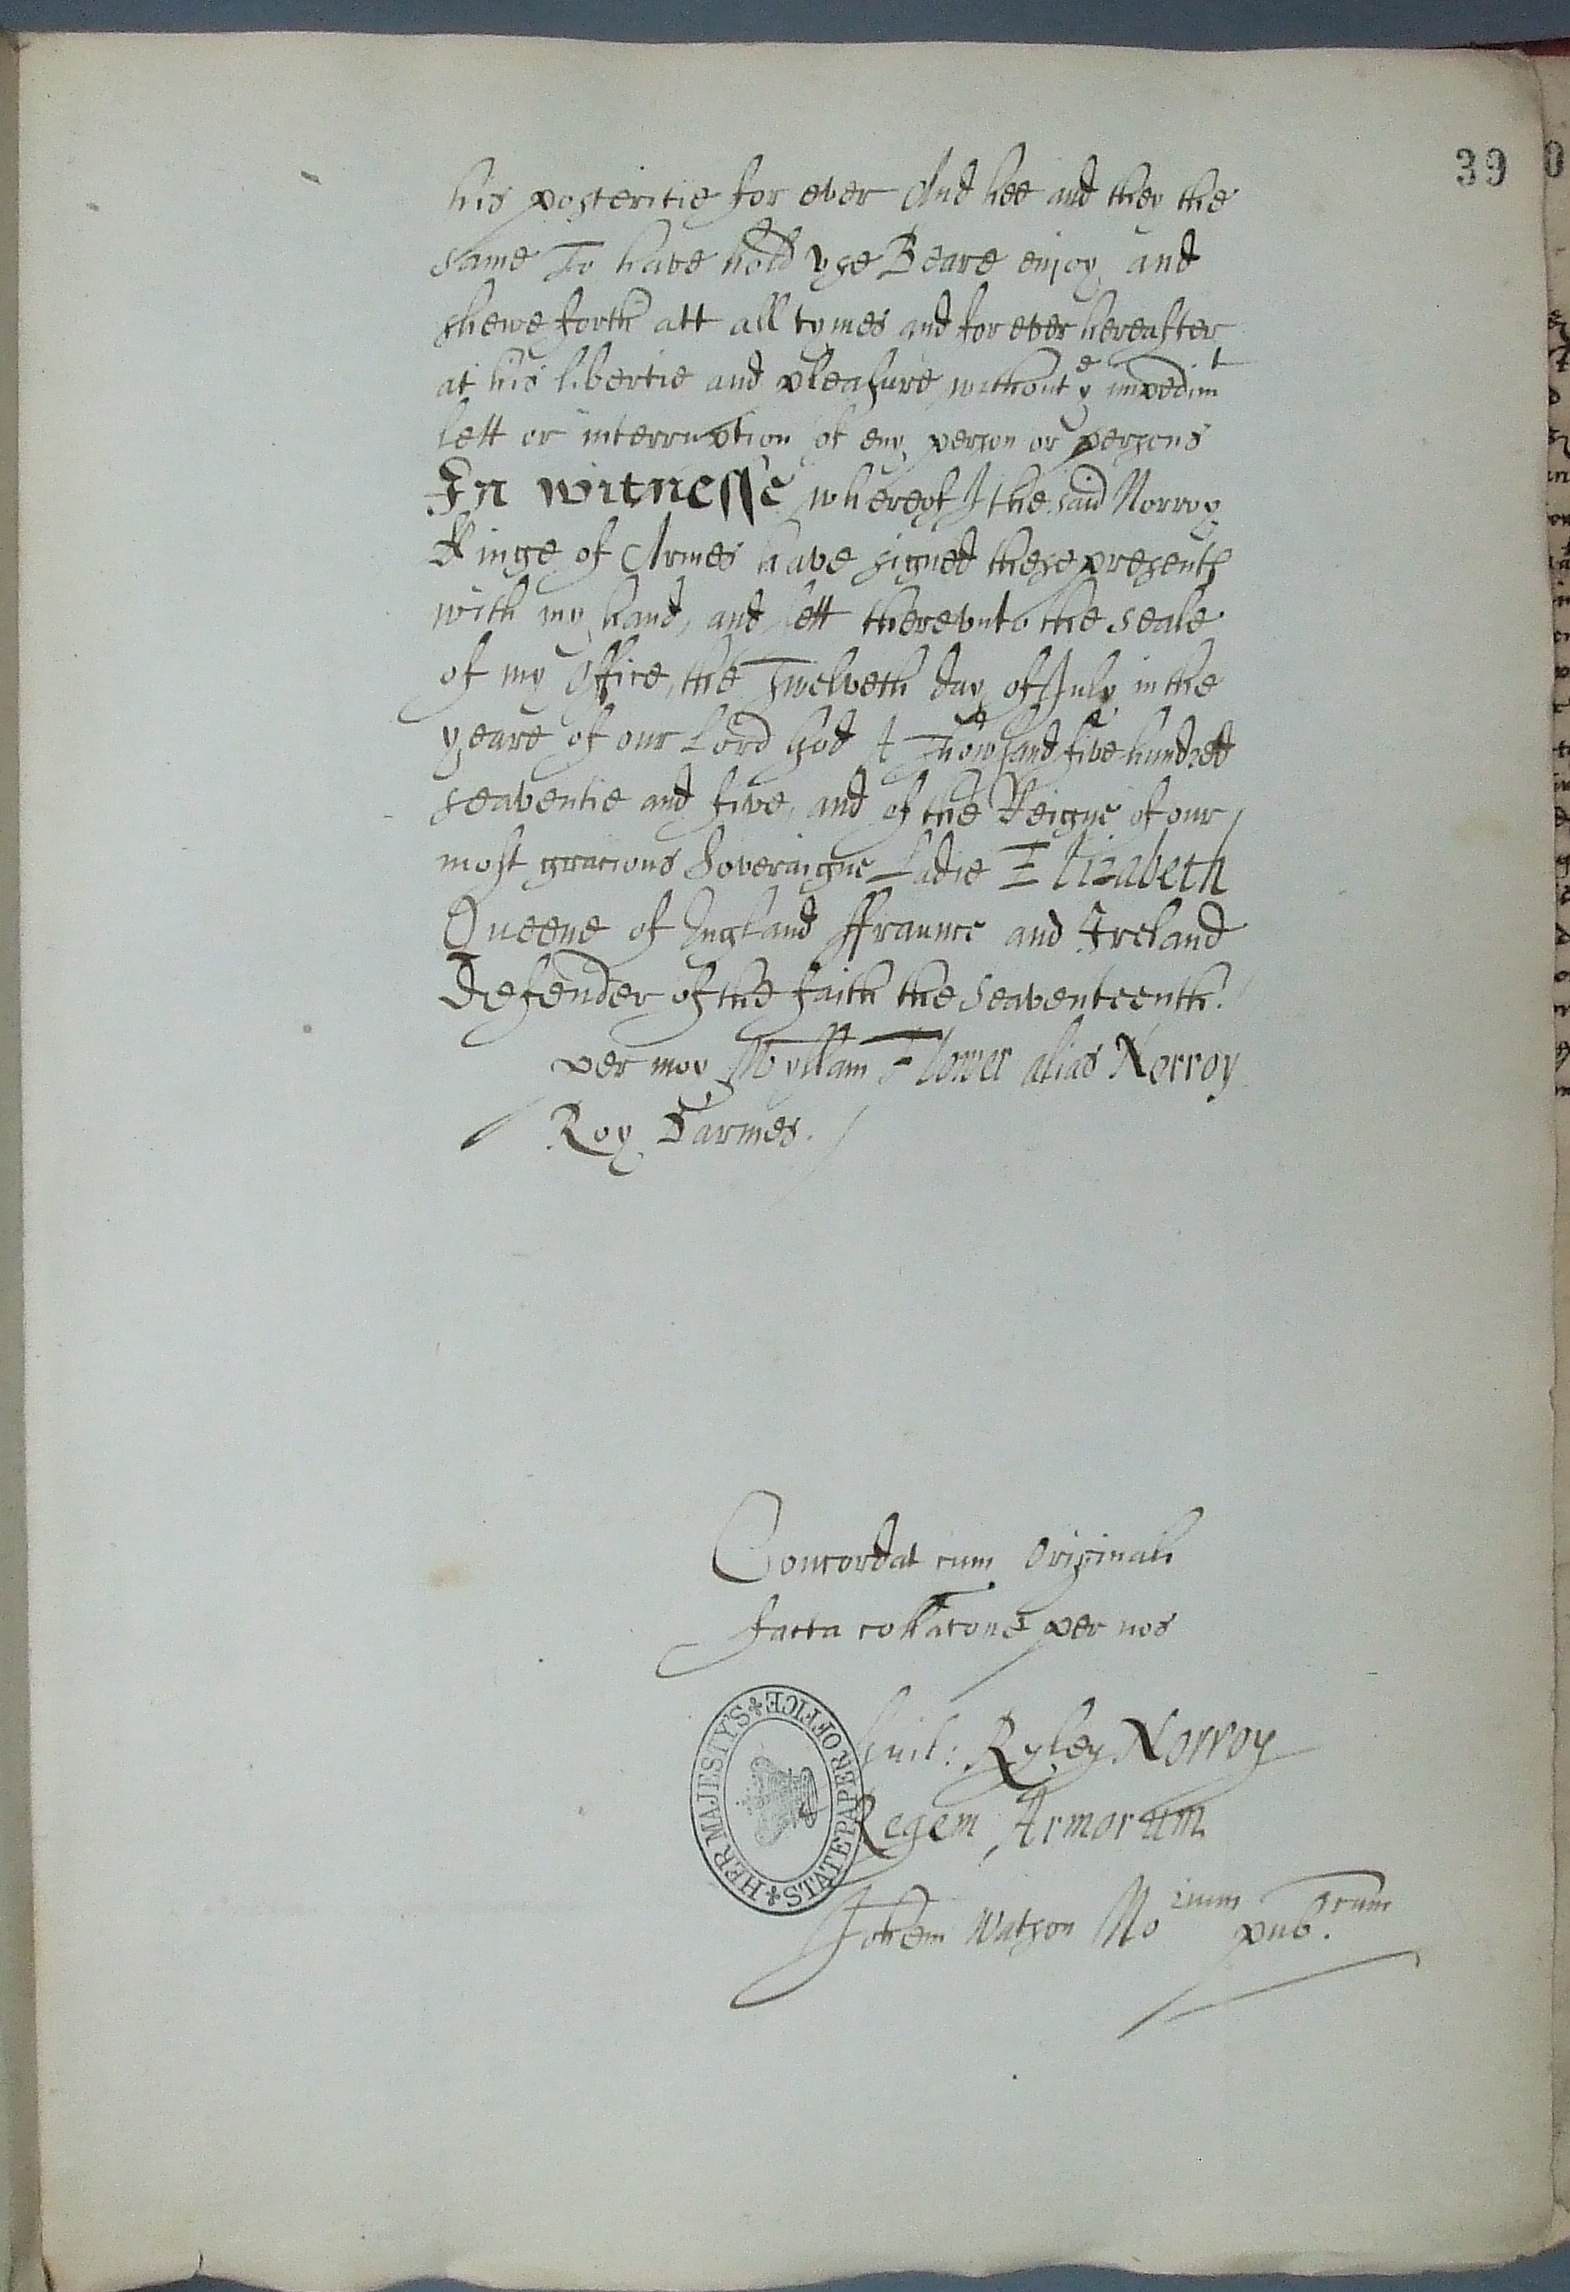 39
his posteritie for ever And hee and they the
same To have hold vse Beare enjoy and
shewe forth att all tymes and for ever hereafter
at his libertie and pleasure without ye impedimt
lett or interruption of eny person or persons
In witnesse whereof I the said Norroy
Kinge of Armes have signed these presents
with my hand, and sett therevnto the seale
of my Office, the Twelveth day of July in the
yeare of our Lord God A Thowsand five hundred
seaventie and five, and of the Reigne of our
most gracious Soveraigne Ladie Elizabeth
Queene of England ffraunce and Ireland
defender of the faith the seaventeenth.
per moy Wyllam Flower alias Norroy
Roy Darmes.
Concordat cum Originali
facta collacone per nos
Guil: Ryley Norroy
Regem Armorum
Johem Watson No rium pub. cum
HER MAJESTY'S STATE PAPER OFFICE